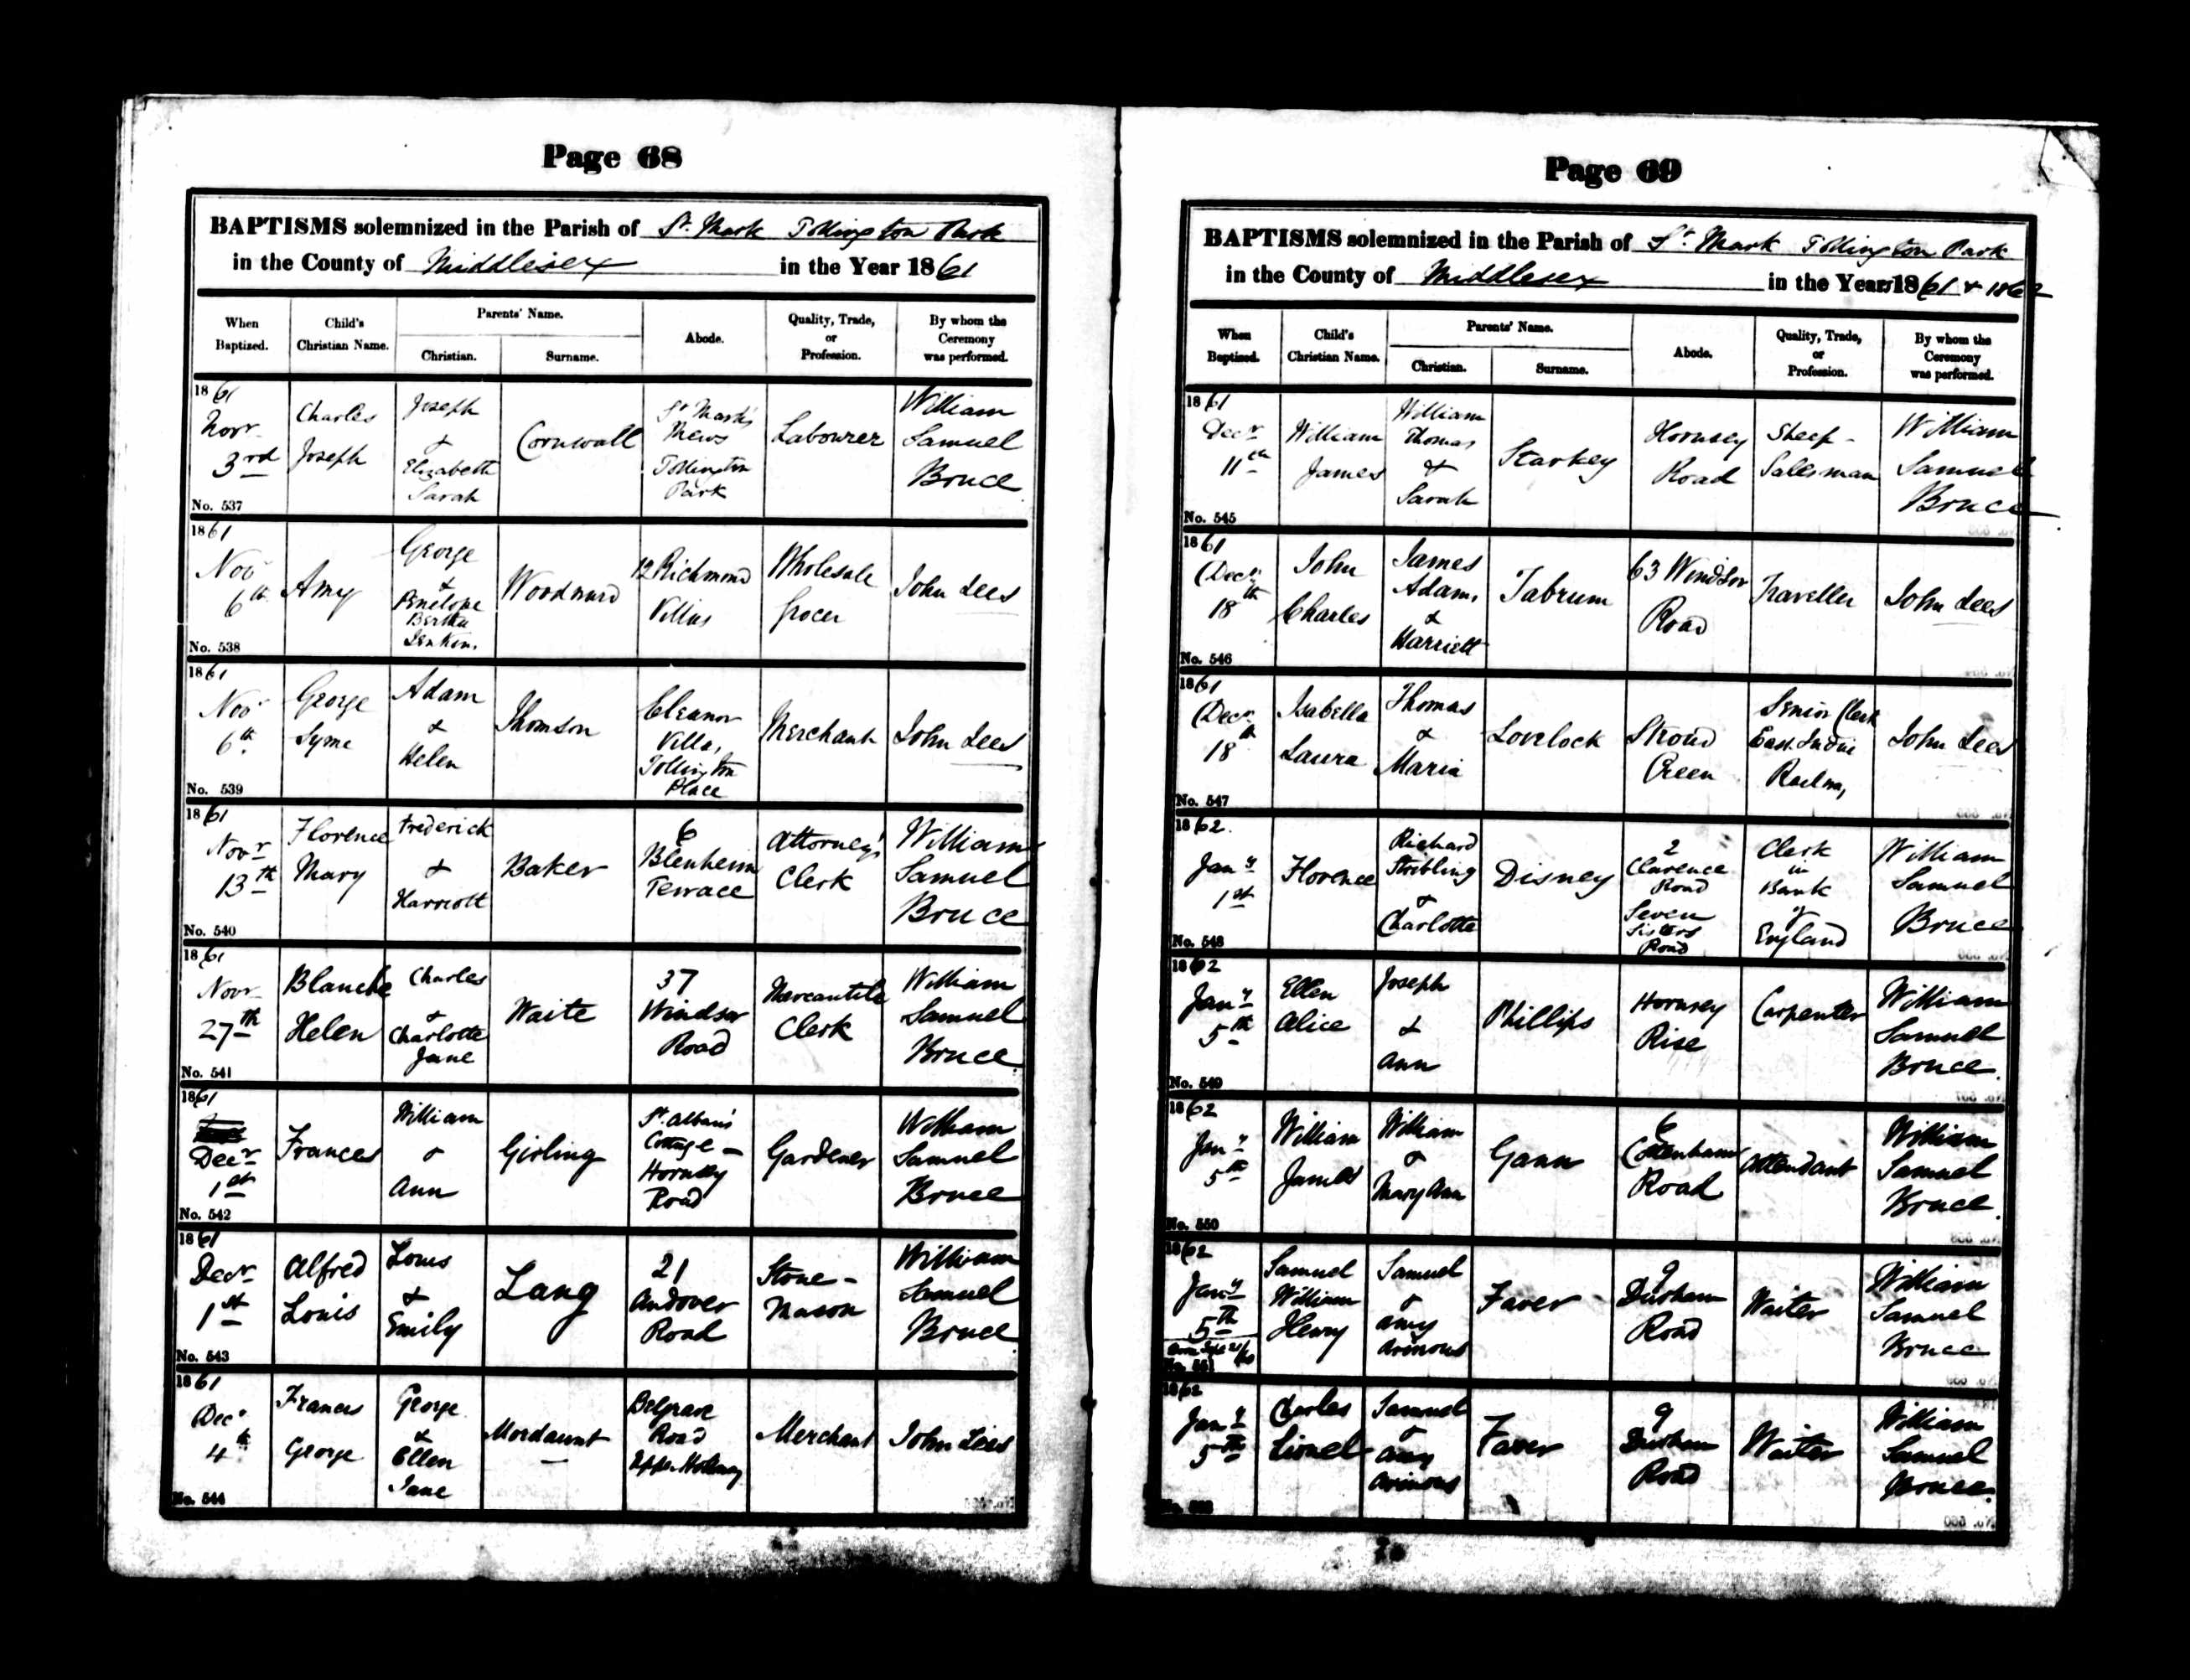 Page 68
BAPTISMS solemnized in the Parish of St. Mark Tollington Park
in the County of Middlesex in the Year 1861
When Baptized.
Child's Christian Name.
Parents' Name.
Christian.
Surname.
Abode.
Quality, Trade, or Profession.
By whom the Ceremony was performed.
1861
Novr
3rd
No. 537
Charles
Joseph
Joseph
&
Elizabeth
Sarah
Cornwall
St Mark's
Mews
Tollington
Park
Labourer
William
Samuel
Bruce
1861
Novr
6th
No. 538
Amy
George
&
Penelope
Bertha
Woodward
12 Richmond
Villas
Wholesale
Grocer
John Lees
1861
Novr
6th
No. 539
George
Syme
Adam
&
Helen
Thomson
Eleanor
Villa,
Tollington
Place
Merchant
John Lees
1861
Novr
13th
No. 540
Florence
Mary
Frederick
&
Harriott
Baker
6
Blenheim
Terrace
Attorney's
Clerk
William
Samuel
Bruce
1861
Novr
27th
No. 541
Blanche
Helen
Charles
&
Charlotte
Jane
Waite
37
Windsor
Road
Mercantile
Clerk
William
Samuel
Bruce
1861
Decr
1st
No. 542
Frances
William
&
Ann
Girling
St Alban's
Cottage -
Hornsey
Road
Gardener
William
Samuel
Bruce
1861
Decr
1st
No. 543
Alfred
Louis
Louis
&
Emily
Lang
21
Andover
Road
Stone -
Mason
William
Samuel
Bruce
1861
Decr
4th
No. 544
Francis
George
George
&
Ellen
Jane
Mordaunt
Belgrave
Road
Upper Holloway
Merchant
John Lees
Page 69
BAPTISMS solemnized in the Parish of St. Mark Tollington Park
in the County of Middlesex in the Years 1861 & 1862
When Baptized.
Child's Christian Name.
Parents' Name.
Christian.
Surname.
Abode.
Quality, Trade, or Profession.
By whom the Ceremony was performed.
1861
Decr
11th
No. 545
William
James
William
Thomas
&
Sarah
Starkey
Hornsey
Road
Sheep -
Salesman
William
Samuel
Bruce
1861
Decr
18th
No. 546
John
Charles
James
Adam,
&
Harriett
Tabrum
63 Windsor
Road
Traveller
John Lees
1861
Decr
18th
No. 547
Isabella
Laura
Thomas
&
Maria
Lovelock
Stroud
Green
Senior Clerk
East India
Railway
John Lees
1862.
Jany
1st
No. 548
Florence
Richard
Stribling
&
Charlotte
Disney
2
Clarence
Road
Seven
Sisters
Road
Clerk
in
Bank
of
England
William
Samuel
Bruce
1862
Jany
5th
No. 549
Ellen
Alice
Joseph
&
Ann
Phillips
Hornsey
Rise
Carpenter
William
Samuel
Bruce.
1862
Jany
5th
No. 550
William
James
William
&
Mary Ann
Gann
6
Cottenham
Road
Attendant
William
Samuel
Bruce.
1862
Jany
5th
No. 551
Samuel
William
Henry
Samuel
&
Amy
Faver
9
Durham
Road
Waiter
William
Samuel
Bruce
1862
Jany
5th
Charles
Lionel
Samuel
&
Amy
Faver
9
Durham
Road
Waiter
William
Samuel
Bruce.